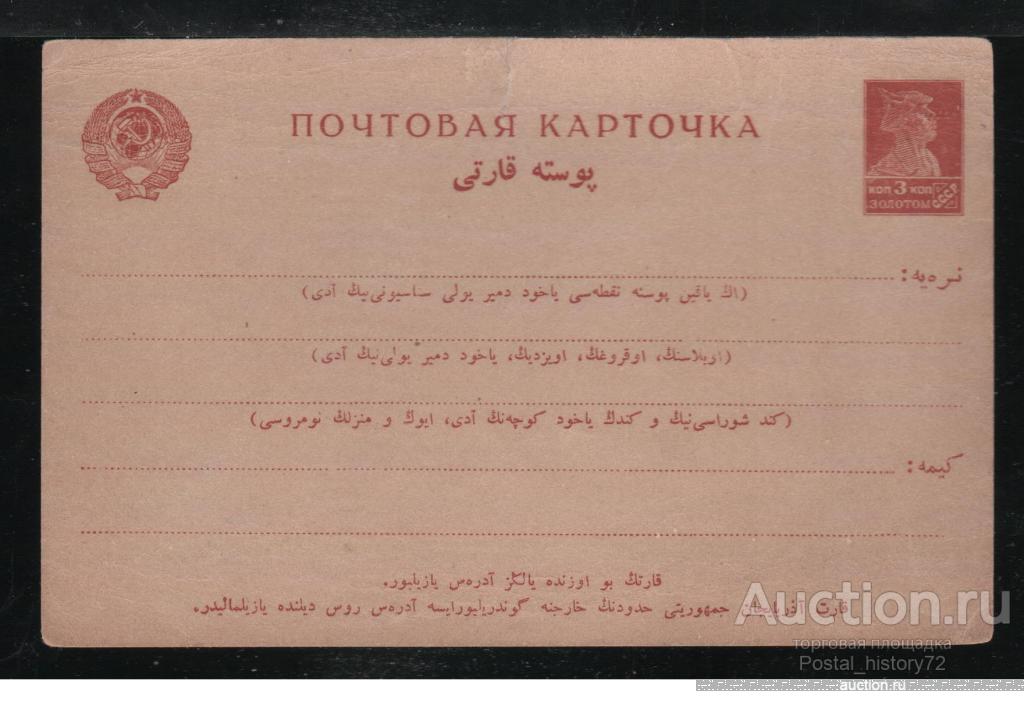 ПОЧТОВАЯ КАРТОЧКА
پوسته قارتی
КОП 3 КОП
ЗОЛОТОМ
СССР
نره‌دیه:
(اڭ یاقین پوسته نقطه‌سی یاخود دمیر یولی ستاسیونی‌نیڭ آدی)
(اوبلاستڭ، اوقروغڭ، اویزدیڭ، یاخود دمیر یولی‌نیڭ آدی)
(کند شوراسی‌نیڭ و کندڭ یاخود کوچه‌نڭ آدی، ایوڭ و منزلڭ نومروسی)
کیمه:
قارتڭ بو اوزنده یالڭز آدره‌س یازیلیور.
قارت آذربایجان جمهوریتی حدودنڭ خارجنه گوندریلیورایسه آدره‌س روس دیلنده یازیلمالیدر.
Auction.ru
торговая площадка
Postal_history72
auction.ru